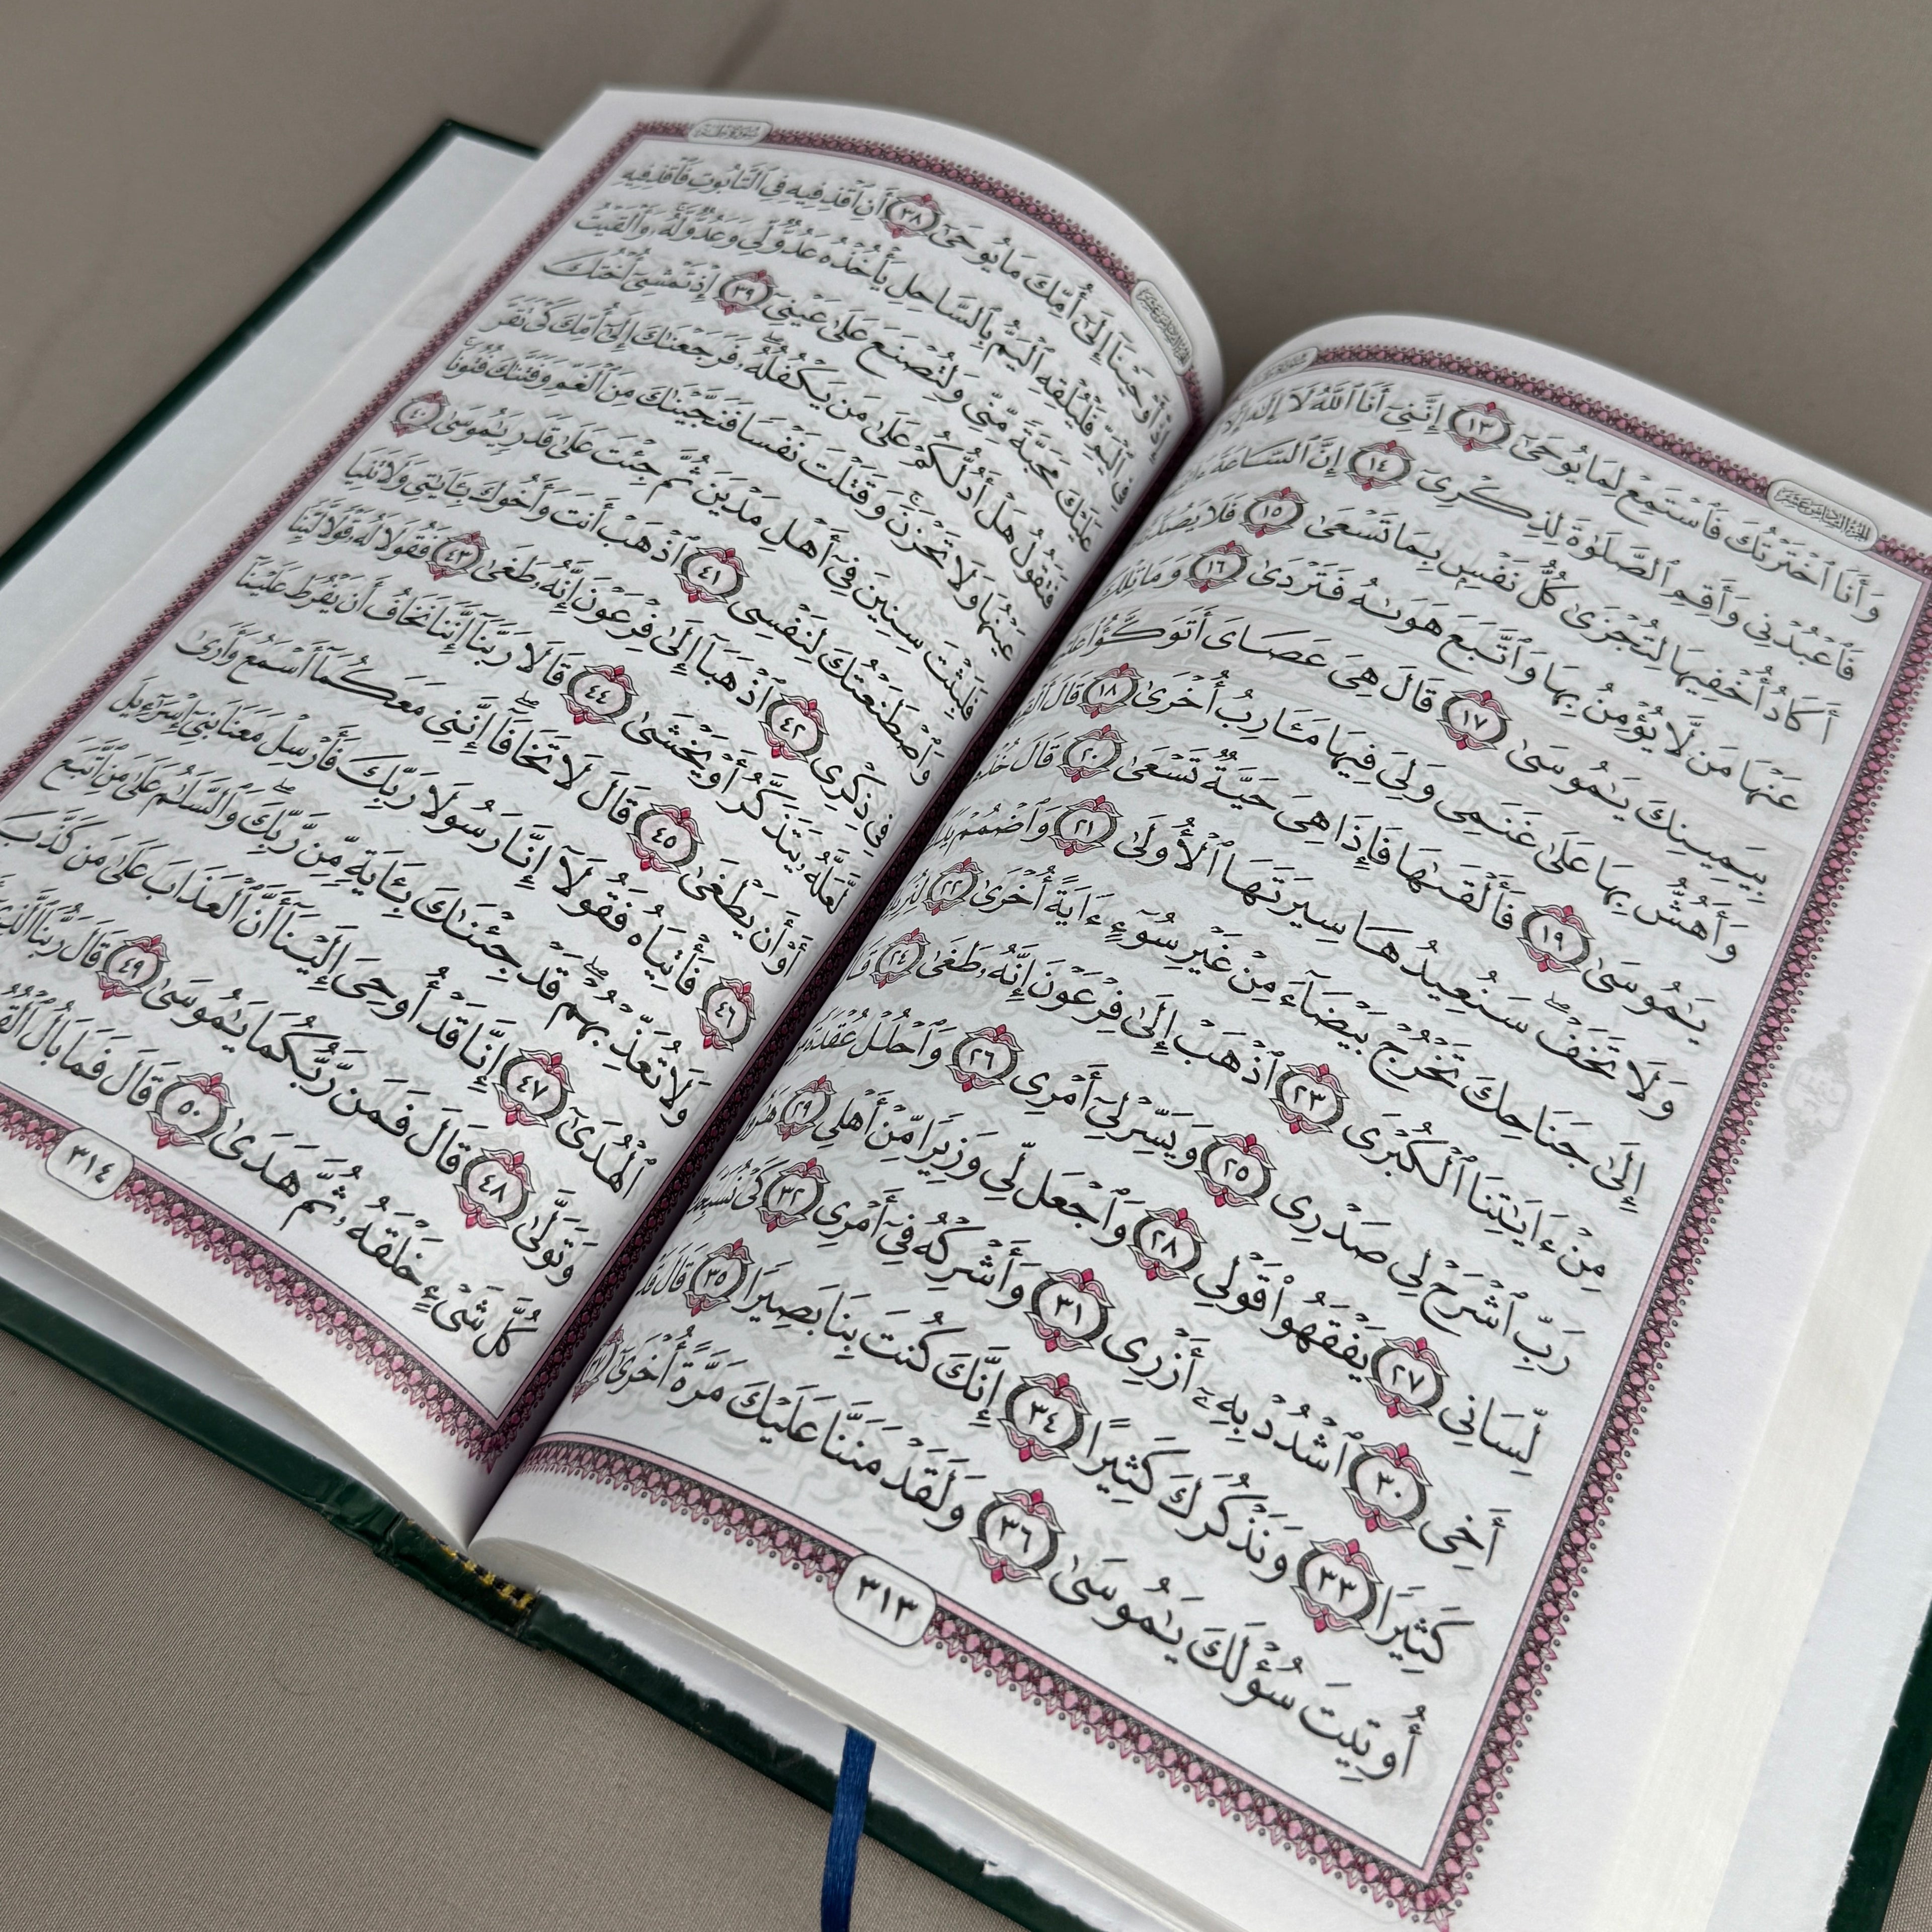 الجزء السادس عشر
وَأَنَا ٱخْتَرْتُكَ فَٱسْتَمِعْ لِمَا يُوحَىٰٓ ١٣ إِنَّنِىٓ أَنَا ٱللَّهُ لَآ إِلَٰهَ إِلَّآ
فَٱعْبُدْنِى وَأَقِمِ ٱلصَّلَوٰةَ لِذِكْرِىٓ ١٤ إِنَّ ٱلسَّاعَةَ
أَكَادُ أُخْفِيهَا لِتُجْزَىٰ كُلُّ نَفْسٍۭ بِمَا تَسْعَىٰ ١٥ فَلَا يَصُدَّنَّكَ
عَنْهَا مَن لَّا يُؤْمِنُ بِهَا وَٱتَّبَعَ هَوَىٰهُ فَتَرْدَىٰ ١٦ وَمَا تِلْكَ
بِيَمِينِكَ يَٰمُوسَىٰ ١٧ قَالَ هِىَ عَصَاىَ أَتَوَكَّؤُا۟
وَأَهُشُّ بِهَا عَلَىٰ غَنَمِى وَلِىَ فِيهَا مَـَٔارِبُ أُخْرَىٰ ١٨ قَالَ
يَٰمُوسَىٰ ١٩ فَأَلْقَىٰهَا فَإِذَا هِىَ حَيَّةٌ تَسْعَىٰ ٢٠ قَالَ خُذْهَا
وَلَا تَخَفْ ۖ سَنُعِيدُهَا سِيرَتَهَا ٱلْأُولَىٰ ٢١ وَٱضْمُمْ يَدَكَ
إِلَىٰ جَنَاحِكَ تَخْرُجْ بَيْضَآءَ مِنْ غَيْرِ سُوٓءٍ ءَايَةً أُخْرَىٰ ٢٢
مِنْ ءَايَٰتِنَا ٱلْكُبْرَى ٢٣ ٱذْهَبْ إِلَىٰ فِرْعَوْنَ إِنَّهُۥ طَغَىٰ ٢٤
رَبِّ ٱشْرَحْ لِى صَدْرِى ٢٥ وَيَسِّرْ لِىٓ أَمْرِى ٢٦ وَٱحْلُلْ عُقْدَةً
لِّسَانِى ٢٧ يَفْقَهُوا۟ قَوْلِى ٢٨ وَٱجْعَل لِّى وَزِيرًا مِّنْ أَهْلِى ٢٩
أَخِى ٣٠ ٱشْدُدْ بِهِۦٓ أَزْرِى ٣١ وَأَشْرِكْهُ فِىٓ أَمْرِى ٣٢ كَىْ نُسَبِّحَكَ
كَثِيرًا ٣٣ وَنَذْكُرَكَ كَثِيرًا ٣٤ إِنَّكَ كُنتَ بِنَا بَصِيرًا ٣٥ قَالَ قَدْ
أُوتِيتَ سُؤْلَكَ يَٰمُوسَىٰ ٣٦ وَلَقَدْ مَنَنَّا عَلَيْكَ مَرَّةً أُخْرَىٰٓ ٣٧
٣١٣
سورة طه
إِذْ أَوْحَيْنَآ إِلَىٰٓ أُمِّكَ مَا يُوحَىٰٓ ٣٨ أَنِ ٱقْذِفِيهِ فِى ٱلتَّابُوتِ فَٱقْذِفِيهِ
فِى ٱلْيَمِّ فَلْيُلْقِهِ ٱلْيَمُّ بِٱلسَّاحِلِ يَأْخُذْهُ عَدُوٌّ لِّى وَعَدُوٌّ لَّهُۥ ۚ وَأَلْقَيْتُ
عَلَيْكَ مَحَبَّةً مِّنِّى وَلِتُصْنَعَ عَلَىٰ عَيْنِىٓ ٣٩ إِذْ تَمْشِىٓ أُخْتُكَ
فَتَقُولُ هَلْ أَدُلُّكُمْ عَلَىٰ مَن يَكْفُلُهُۥ ۖ فَرَجَعْنَٰكَ إِلَىٰٓ أُمِّكَ كَىْ تَقَرَّ
عَيْنُهَا وَلَا تَحْزَنَ ۚ وَقَتَلْتَ نَفْسًا فَنَجَّيْنَٰكَ مِنَ ٱلْغَمِّ وَفَتَنَّٰكَ فُتُونًا ۚ
فَلَبِثْتَ سِنِينَ فِىٓ أَهْلِ مَدْيَنَ ثُمَّ جِئْتَ عَلَىٰ قَدَرٍ يَٰمُوسَىٰ ٤٠
وَٱصْطَنَعْتُكَ لِنَفْسِى ٤١ ٱذْهَبْ أَنتَ وَأَخُوكَ بِـَٔايَٰتِى وَلَا تَنِيَا
فِى ذِكْرِى ٤٢ ٱذْهَبَآ إِلَىٰ فِرْعَوْنَ إِنَّهُۥ طَغَىٰ ٤٣ فَقُولَا لَهُۥ قَوْلًا لَّيِّنًا
لَّعَلَّهُۥ يَتَذَكَّرُ أَوْ يَخْشَىٰ ٤٤ قَالَا رَبَّنَآ إِنَّنَا نَخَافُ أَن يَفْرُطَ عَلَيْنَآ
أَوْ أَن يَطْغَىٰ ٤٥ قَالَ لَا تَخَافَآ ۖ إِنَّنِى مَعَكُمَآ أَسْمَعُ وَأَرَىٰ
٤٦ فَأْتِيَاهُ فَقُولَآ إِنَّا رَسُولَا رَبِّكَ فَأَرْسِلْ مَعَنَا بَنِىٓ إِسْرَٰٓءِيلَ
وَلَا تُعَذِّبْهُمْ ۖ قَدْ جِئْنَٰكَ بِـَٔايَةٍ مِّن رَّبِّكَ ۖ وَٱلسَّلَٰمُ عَلَىٰ مَنِ ٱتَّبَعَ
ٱلْهُدَىٰٓ ٤٧ إِنَّا قَدْ أُوحِىَ إِلَيْنَآ أَنَّ ٱلْعَذَابَ عَلَىٰ مَن كَذَّبَ
وَتَوَلَّىٰ ٤٨ قَالَ فَمَن رَّبُّكُمَا يَٰمُوسَىٰ ٤٩ قَالَ رَبُّنَا ٱلَّذِىٓ
كُلَّ شَىْءٍ خَلْقَهُۥ ثُمَّ هَدَىٰ ٥٠ قَالَ فَمَا بَالُ
٣١٤